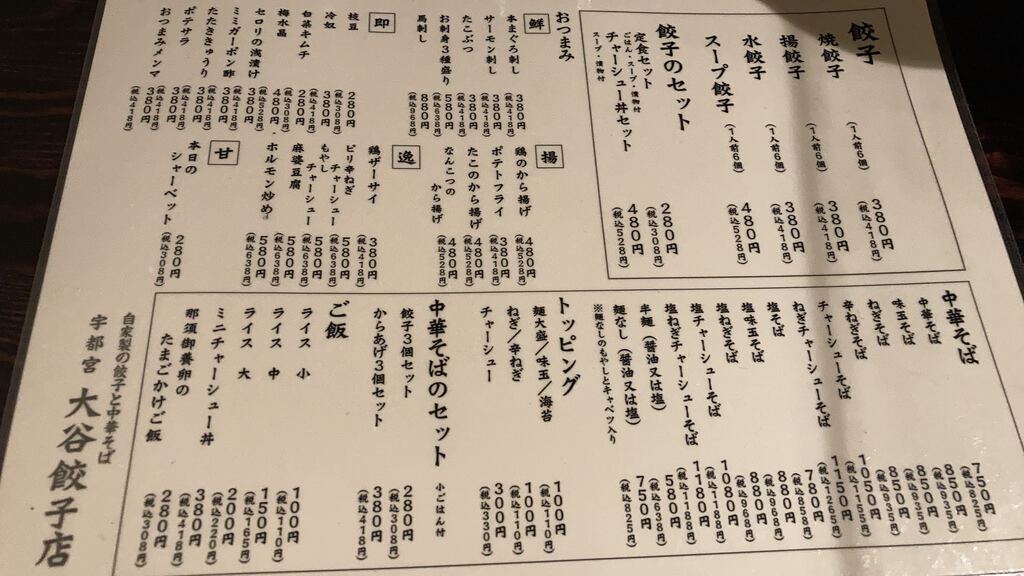 餃子
焼餃子（1人前6個）380円（税込418円）
揚餃子（1人前6個）380円（税込418円）
水餃子（1人前6個）380円（税込418円）
スープ餃子（1人前6個）480円（税込528円）
餃子のセット
定食セット 280円（税込308円）
ごはん・スープ・漬物付
チャーシュー丼セット 480円（税込528円）
スープ・漬物付
おつまみ
鮮
本まぐろ刺し 380円（税込418円）
サーモン刺し 380円（税込418円）
たこぶつ 380円（税込418円）
お刺身3種盛り 580円（税込638円）
馬刺し 880円（税込968円）
即
枝豆 280円（税込308円）
冷奴 380円（税込418円）
白菜キムチ 280円（税込308円）
梅水晶 480円（税込528円）
セロリの浅漬け 380円（税込418円）
ミミガーポン酢 380円（税込418円）
たたききゅうり 380円（税込418円）
ポテサラ 380円（税込418円）
おつまみメンマ 380円（税込418円）
揚
鶏のから揚げ 480円（税込528円）
ポテトフライ 380円（税込418円）
たこのから揚げ 480円（税込528円）
なんこつのから揚げ 480円（税込528円）
逸
鶏ザーサイ 380円（税込418円）
ピリ辛ねぎチャーシュー 580円（税込638円）
もやしチャーシュー 580円（税込638円）
麻婆豆腐 580円（税込638円）
ホルモン炒め 580円（税込638円）
甘
本日のシャーベット 280円（税込308円）
中華そば
中華そば 750円（税込825円）
味玉そば 850円（税込935円）
ねぎそば 850円（税込935円）
辛ねぎそば 850円（税込935円）
チャーシューそば 1050円（税込1155円）
ねぎチャーシューそば 1150円（税込1265円）
塩そば 780円（税込858円）
塩味玉そば 880円（税込968円）
塩ねぎそば 880円（税込968円）
塩チャーシューそば 1080円（税込1188円）
塩ねぎチャーシューそば 1180円（税込1188円）
半麺（醤油又は塩）580円
麺なし（醤油又は塩）750円（税込825円）
※麺なしのもやしとキャベツ入り
トッピング
麺大盛／味玉／海苔 100円（税込110円）
ねぎ／辛ねぎ 100円（税込110円）
チャーシュー 300円（税込330円）
中華そばのセット 小ごはん付
餃子3個セット 280円（税込308円）
からあげ3個セット 380円（税込418円）
ご飯
ライス 小 100円（税込110円）
ライス 中 150円（税込165円）
ライス 大 200円（税込220円）
ミニチャーシュー丼 380円（税込418円）
那須御養卵のたまごかけご飯 280円（税込308円）
自家製の餃子と中華そば
宇都宮 大谷餃子店